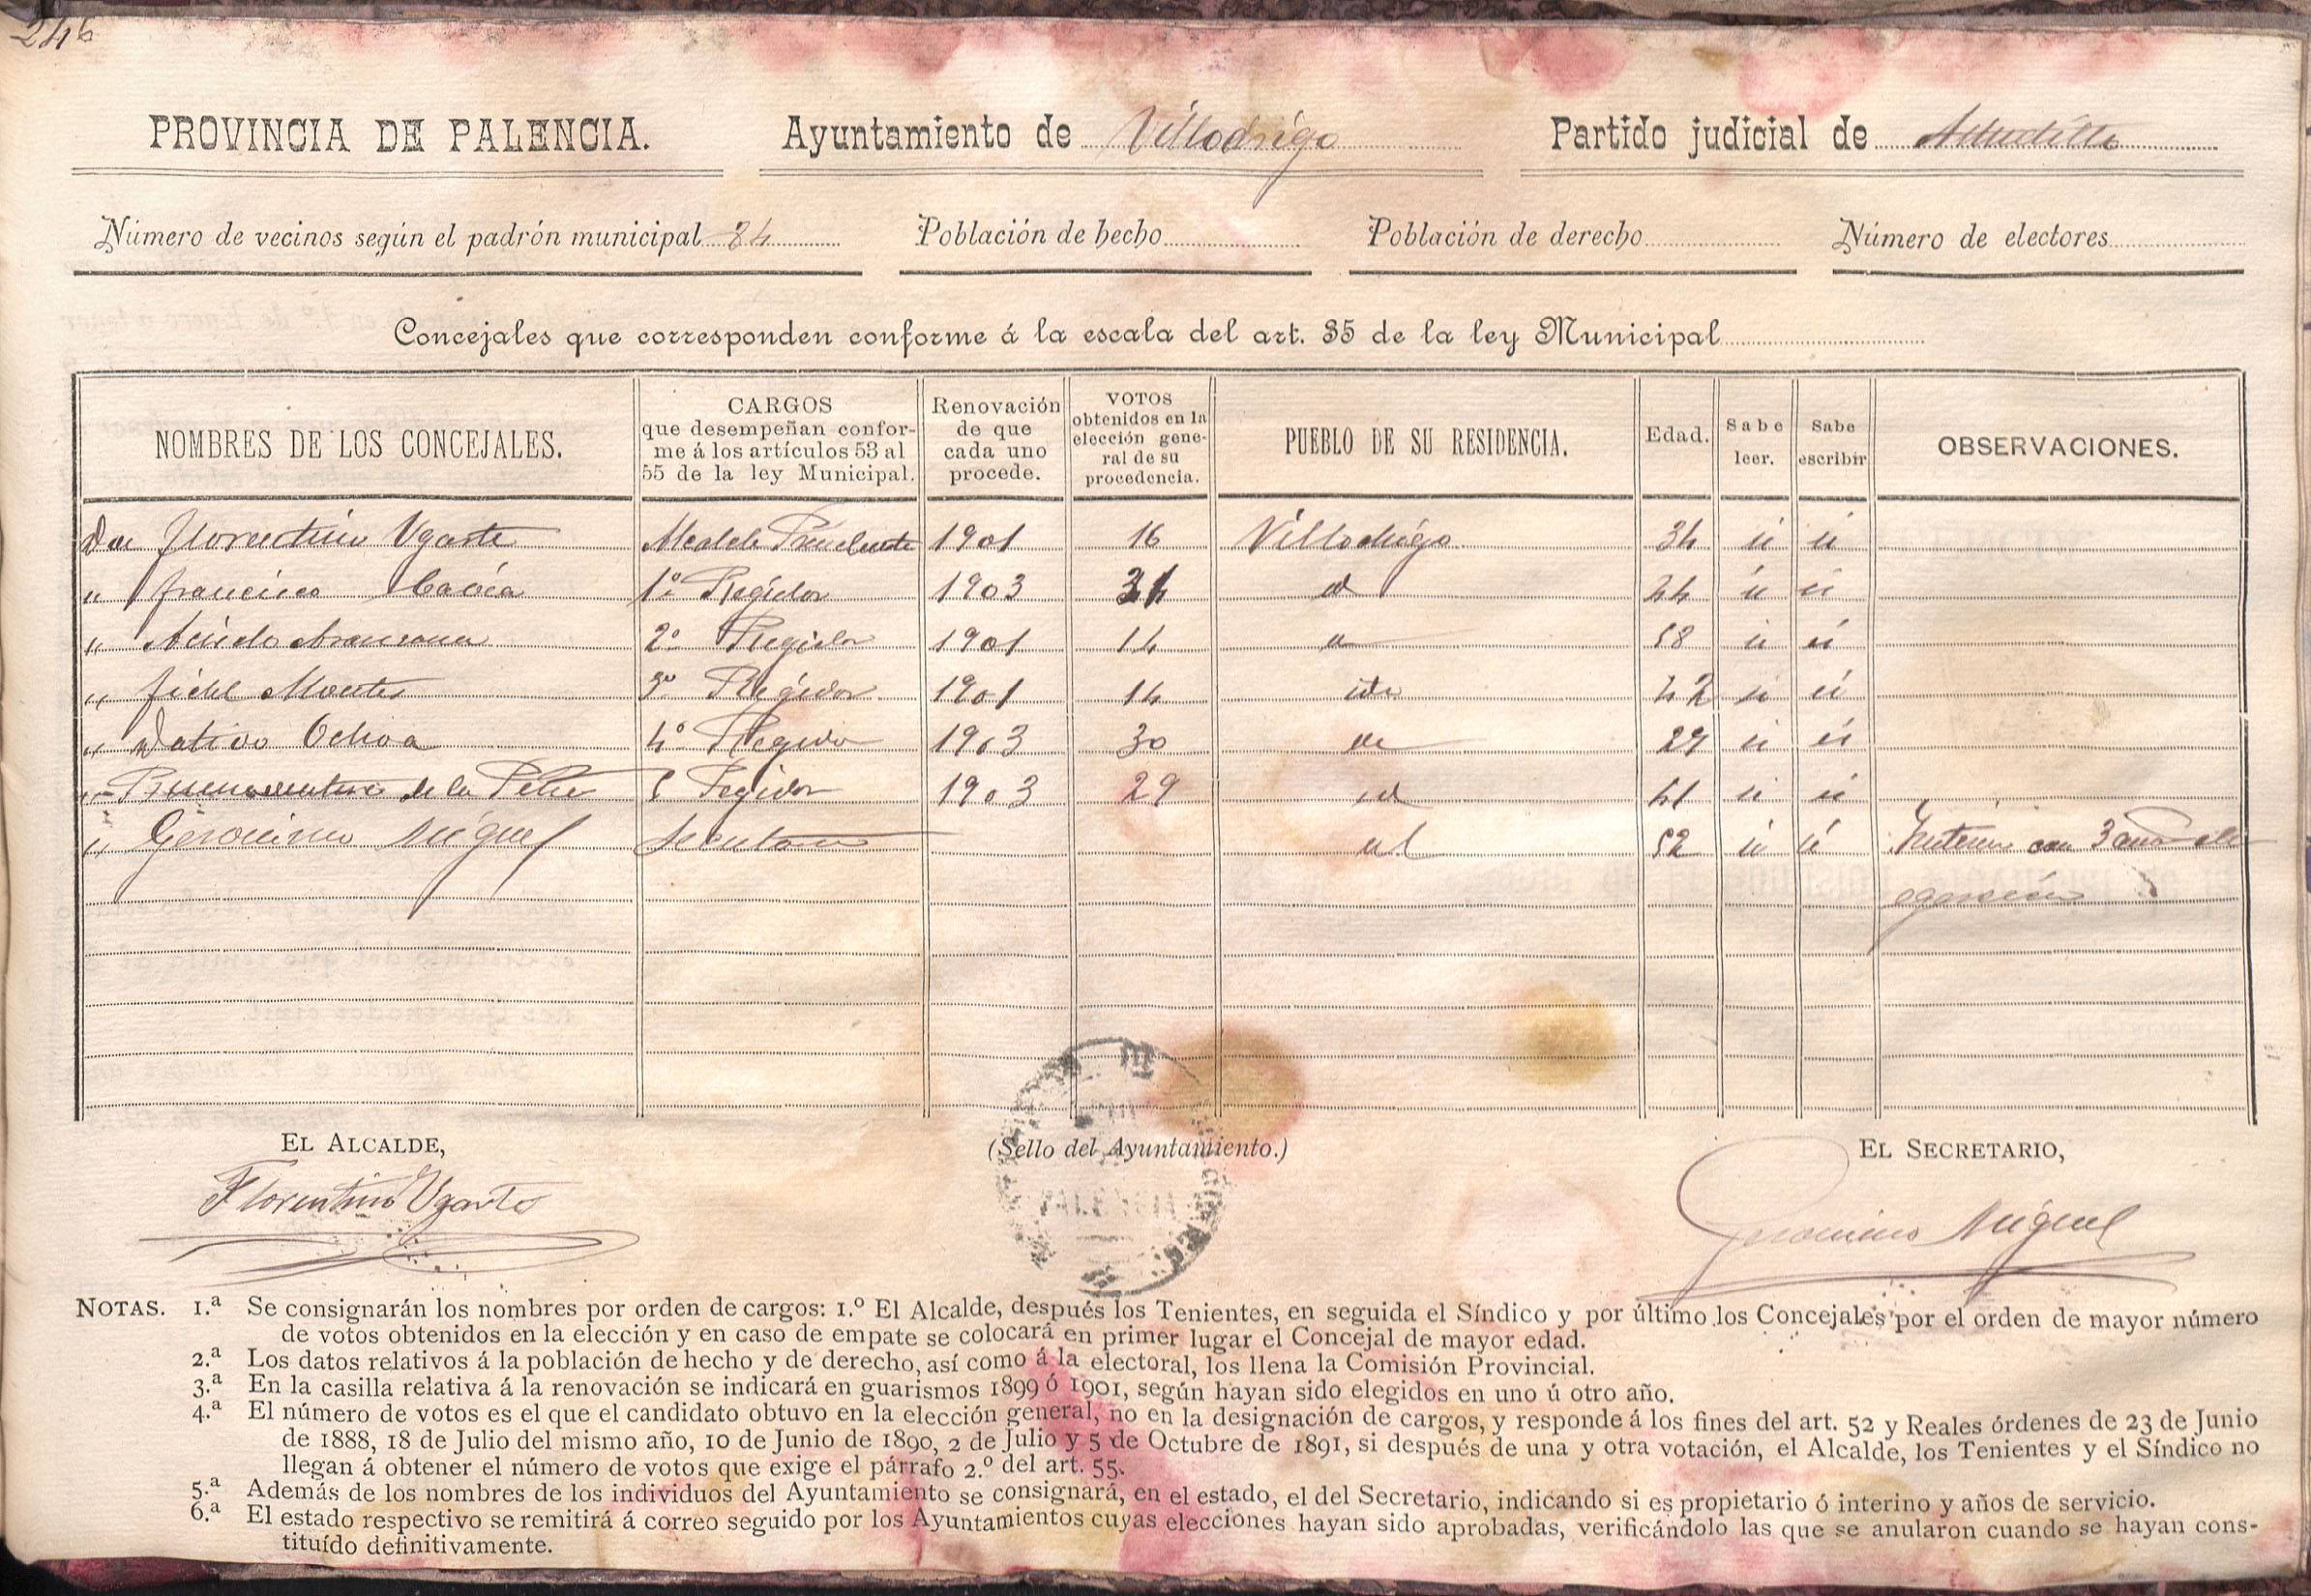 246
PROVINCIA DE PALENCIA. Ayuntamiento de Villodrigo Partido judicial de Astudillo
Número de vecinos según el padrón municipal 84 Población de hecho Población de derecho Número de electores
Concejales que corresponden conforme á la escala del art. 35 de la ley Municipal
NOMBRES DE LOS CONCEJALES. CARGOS que desempeñan conforme á los artículos 53 al 55 de la ley Municipal. Renovación de que cada uno procede. VOTOS obtenidos en la elección general de su procedencia. PUEBLO DE SU RESIDENCIA. Edad. Sabe leer. Sabe escribir OBSERVACIONES.
Don Florentino Ugarte Alcalde Presidente 1901 16 Villodrigo 34 si si
" Francisco 1º Regidor 1903 31 id 44 si si
" 2º Regidor 1901 14 id 58 si si
" Fidel Montes 3º Regidor 1901 14 id 42 si si
" Dativo Ochoa 4º Regidor 1903 30 id 29 si si
" Buenaventura de la Peña 5 Regidor 1903 29 id 41 si si
" Geronimo Miguel Secretario id 52 si si Interino con 3 años de
egercicio
EL ALCALDE, (Sello del Ayuntamiento.) EL SECRETARIO,
Florentino Ugarte PALENCIA Geronimo Miguel
NOTAS. 1.ª Se consignarán los nombres por orden de cargos: 1.º El Alcalde, después los Tenientes, en seguida el Síndico y por último los Concejales por el orden de mayor número
de votos obtenidos en la elección y en caso de empate se colocará en primer lugar el Concejal de mayor edad.
2.ª Los datos relativos á la población de hecho y de derecho, así como á la electoral, los llena la Comisión Provincial.
3.ª En la casilla relativa á la renovación se indicará en guarismos 1899 ó 1901, según hayan sido elegidos en uno ú otro año.
4.ª El número de votos es el que el candidato obtuvo en la elección general, no en la designación de cargos, y responde á los fines del art. 52 y Reales órdenes de 23 de Junio
de 1888, 18 de Julio del mismo año, 10 de Junio de 1890, 2 de Julio y 5 de Octubre de 1891, si después de una y otra votación, el Alcalde, los Tenientes y el Síndico no
llegan á obtener el número de votos que exige el párrafo 2.º del art. 55.
5.ª Además de los nombres de los individuos del Ayuntamiento se consignará, en el estado, el del Secretario, indicando si es propietario ó interino y años de servicio.
6.ª El estado respectivo se remitirá á correo seguido por los Ayuntamientos cuyas elecciones hayan sido aprobadas, verificándolo las que se anularon cuando se hayan cons-
tituído definitivamente.